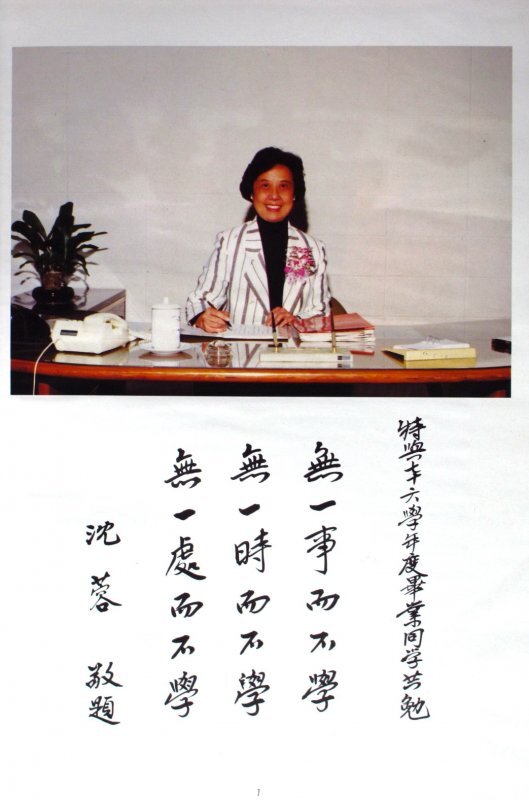 特與七十六學年度畢業同学共勉
無一事而不學
無一時而不學
無一處而不學
沈蓉 敬題